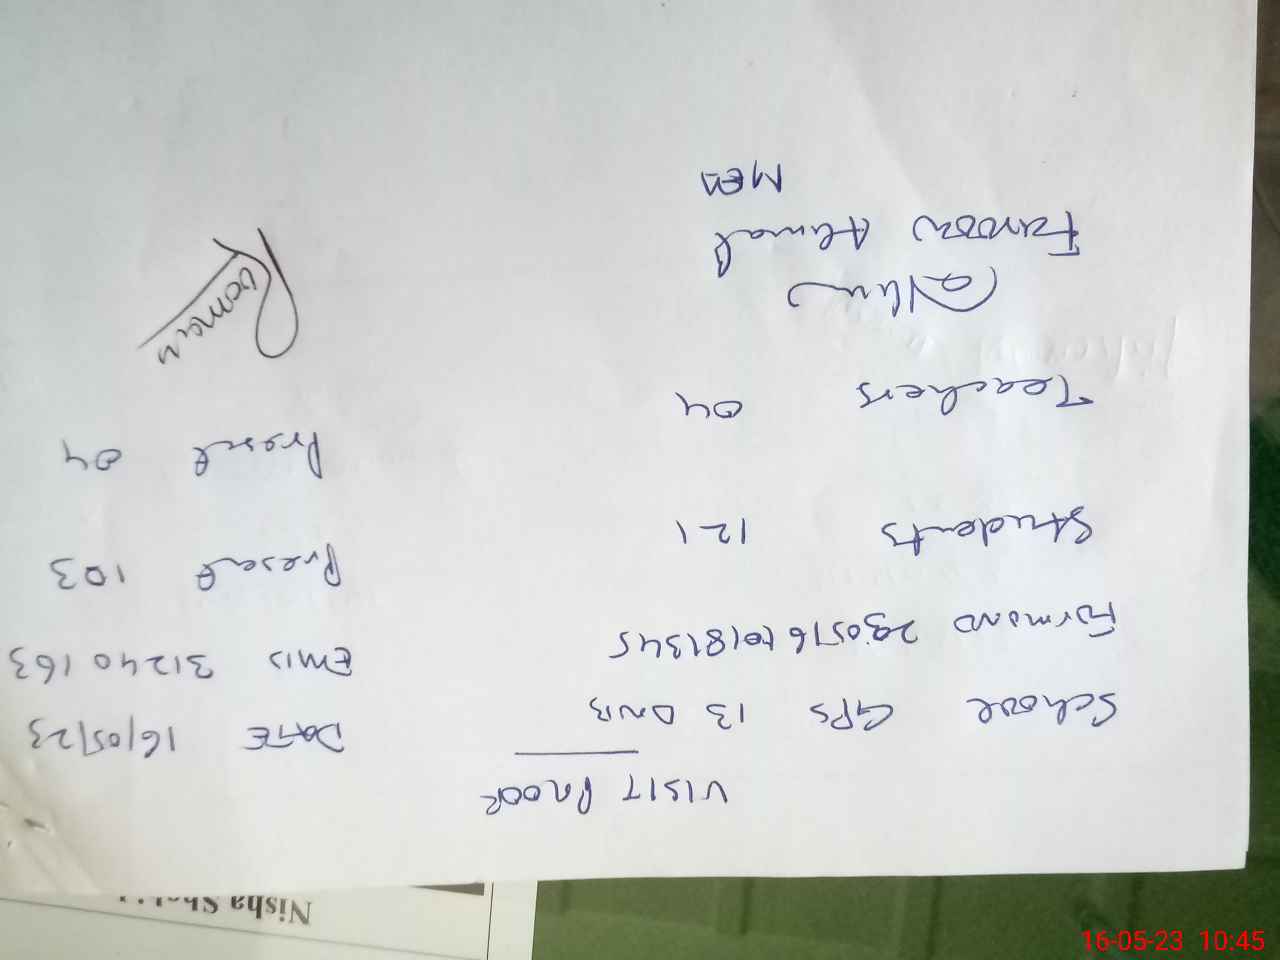 VISIT PROOF
School GPS 13 DNB DATE 16/05/23
Form No EMIS 31240163
Students 121 Present 103
Teachers 04 Present 04
Farooq Ahmad
MEA
Nisha
16-05-23 10:45